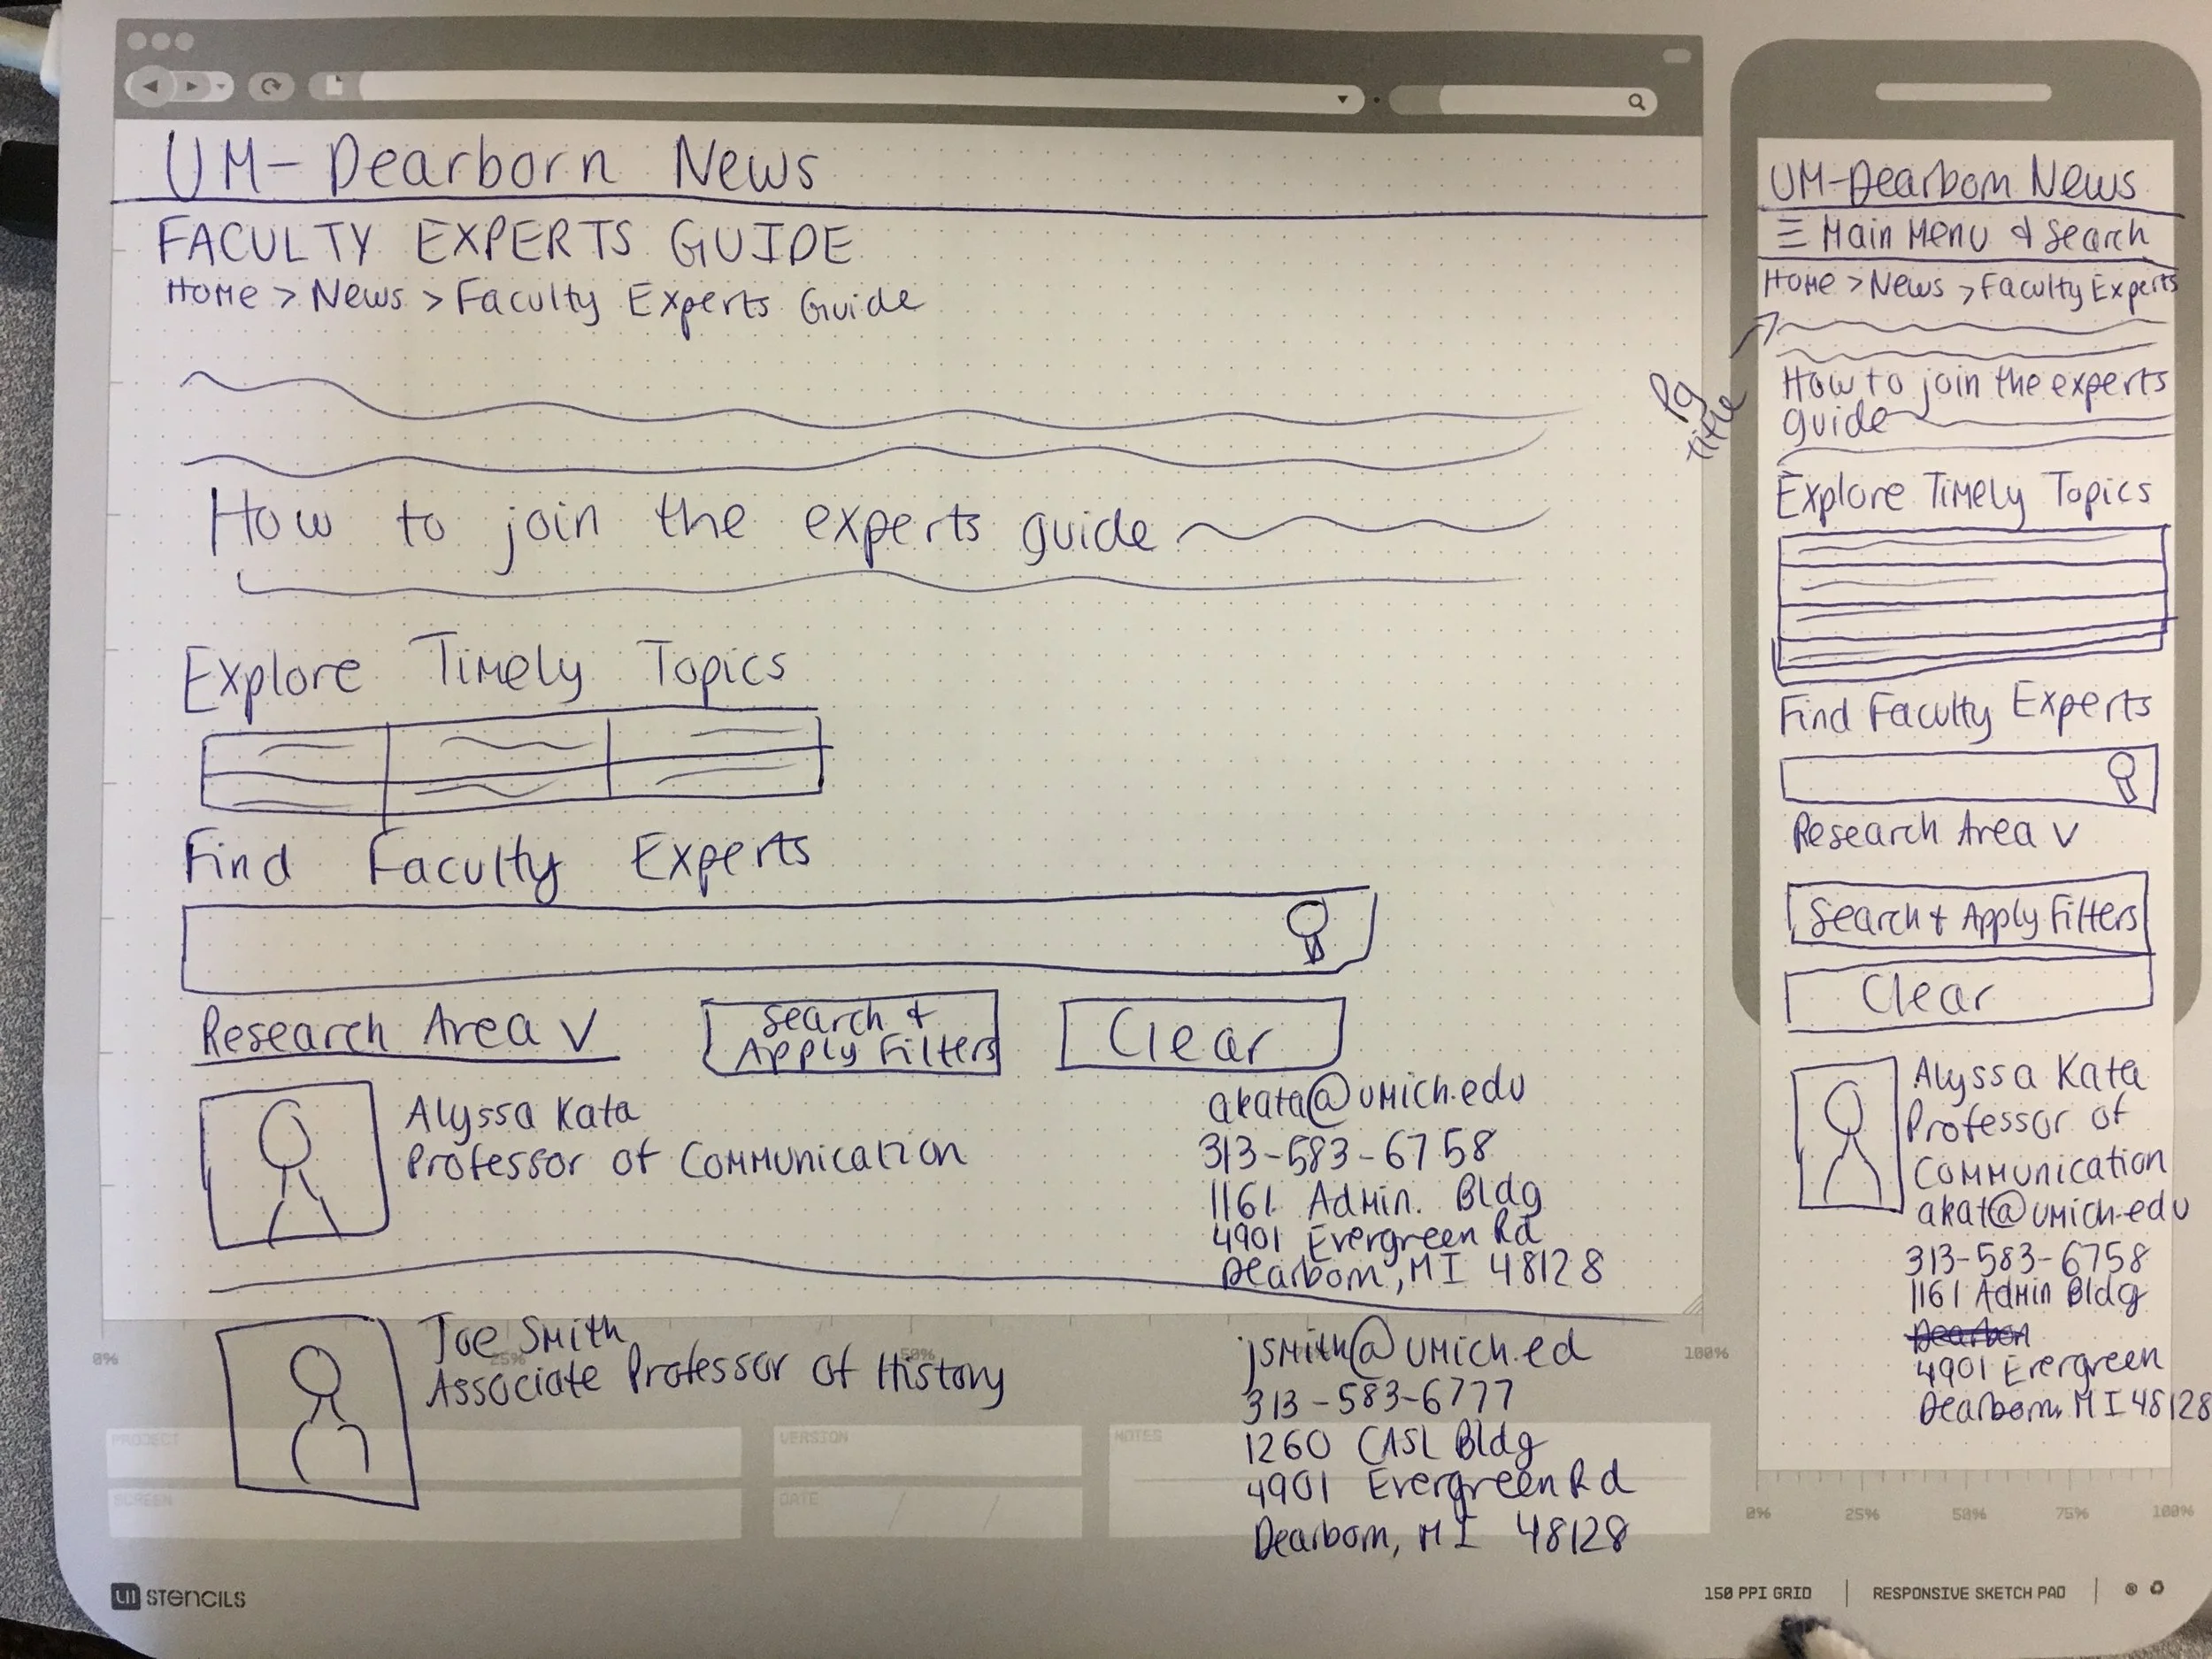 UM-Dearborn News
FACULTY EXPERTS GUIDE
Home > News > Faculty Experts Guide
How to join the experts guide
Explore Timely Topics
Find Faculty Experts
Research Area V
Search +
Apply Filters
Clear
Alyssa Kata
Professor of Communication
akata@umich.edu
313-583-6758
1161 Admin. Bldg
4901 Evergreen Rd
Dearborn, MI 48128
Joe Smith
Associate Professor of History
jsmith@umich.ed
313-583-6777
1260 CASL Bldg
4901 Evergreen Rd
Dearborn, MI 48128
0% 25% 50% 100%
PROJECT
VERSION
NOTES
SCREEN
DATE / /
UI STENCILS
Pg
Title
UM-Dearborn News
Main Menu & Search
Home > News > Faculty Experts
How to join the experts
guide
Explore Timely Topics
Find Faculty Experts
Research Area V
Search + Apply Filters
Clear
Alyssa Kata
Professor of
Communication
akat@umich.edu
313-583-6758
1161 Admin Bldg
4901 Evergreen
Dearborn, MI 48128
0% 25% 50% 75% 100%
150 PPI GRID | RESPONSIVE SKETCH PAD |